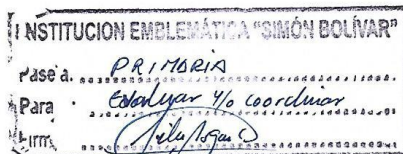 INSTITUCION EMBLEMÁTICA "SIMÓN BOLÍVAR"
Pase a. PRIMARIA
Para y/o coordinar
Firma